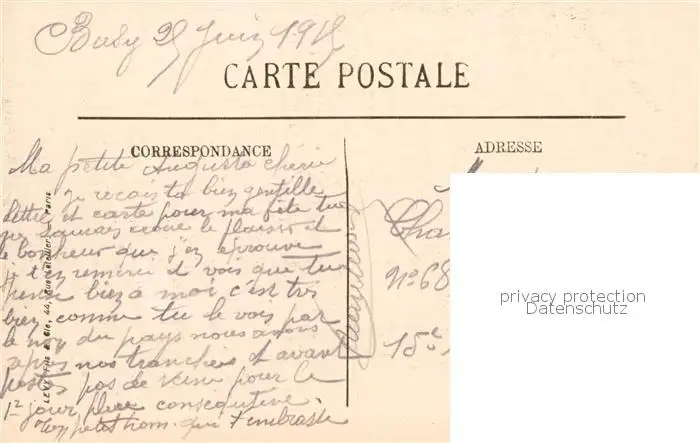 Busy 25 Juin 1915
CARTE POSTALE
CORRESPONDANCE
ADRESSE
Ma petite Augusta chérie
Je reçois ta bien gentille
lettre et carte pour ma fête tu
ne saurais croire le plaisir et
le bonheur que j'ez éprouve
je t'ez remerci et vois que tu
pense bien à moi c'est très
bien, comme tu le vois par
le nom du pays nous avons
après nos tranchées et avant
postes pas de veine pour le
1er jour consequtive
ton petit hom. qui t'embrasse
LEVY Fils & Cie, 44, Rue Letellier - Paris
Cha
N° 68
15e
privacy protection
Datenschutz